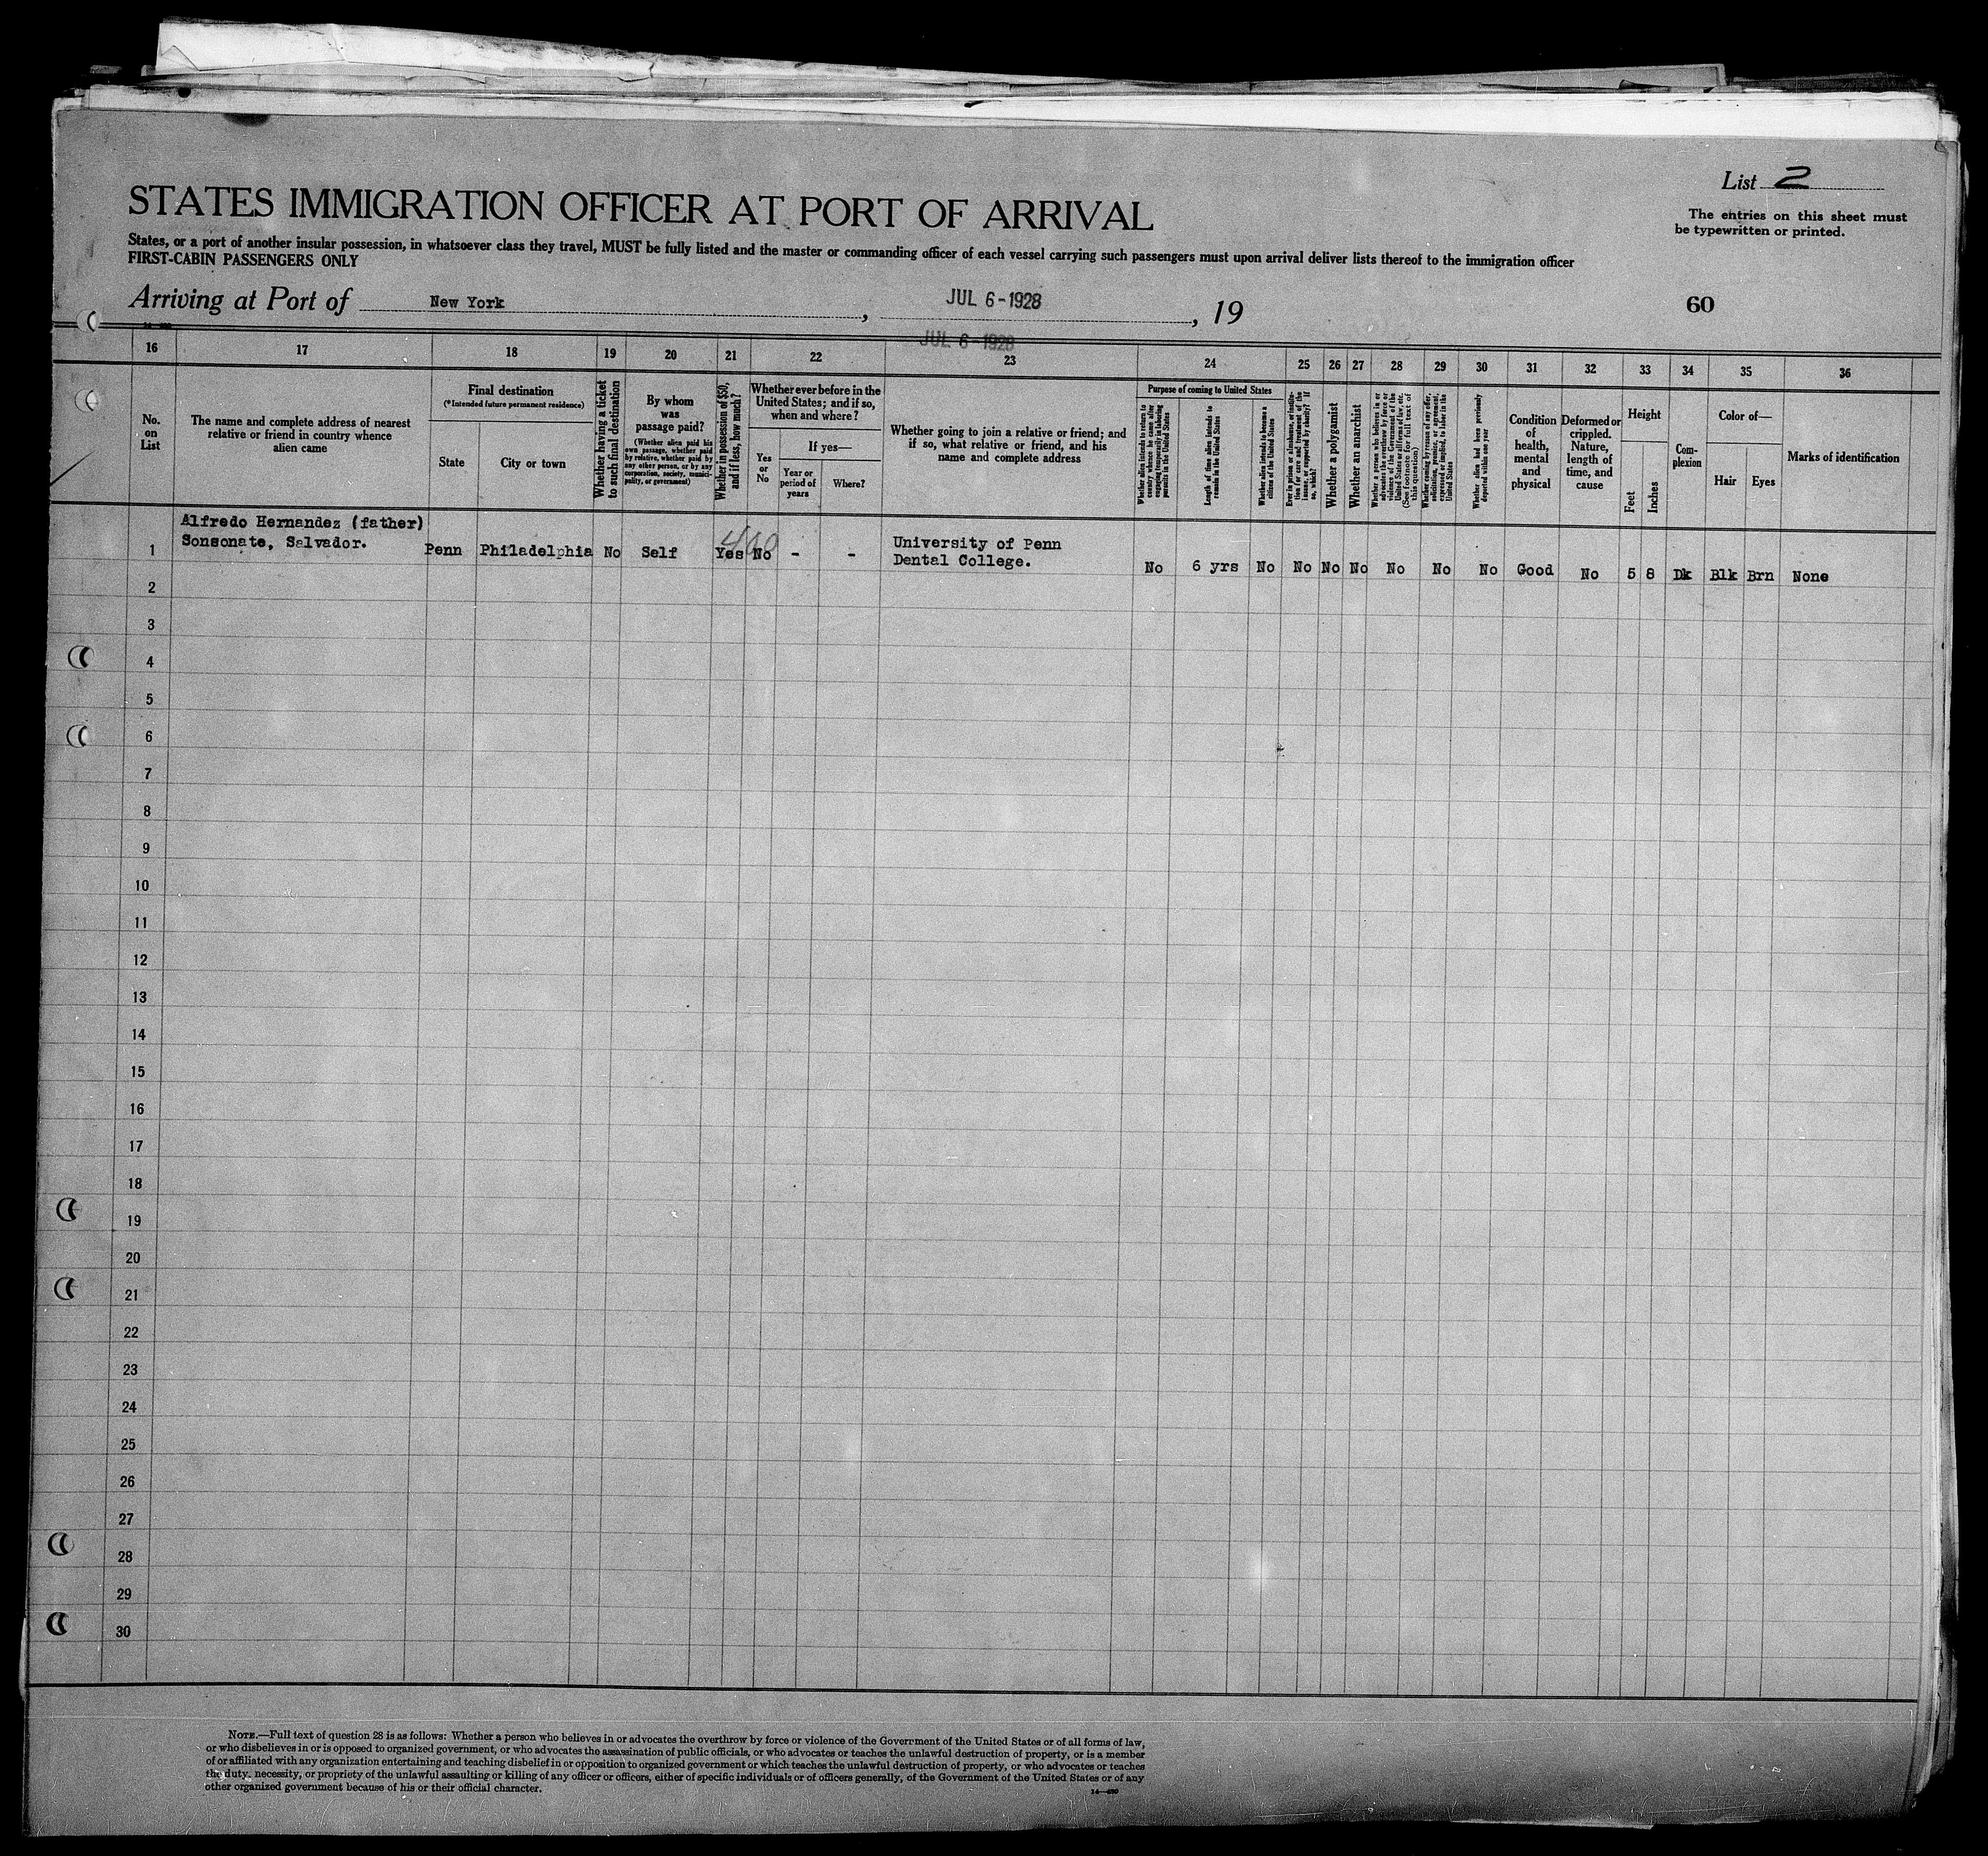 List 2
The entries on this sheet must
be typewritten or printed.
STATES IMMIGRATION OFFICER AT PORT OF ARRIVAL
States, or a port of another insular possession, in whatsoever class they travel, MUST be fully listed and the master or commanding officer of each vessel carrying such passengers must upon arrival deliver lists thereof to the immigration officer
FIRST-CABIN PASSENGERS ONLY
Arriving at Port of New York, JUL 6-1928, 19
60
JUL 6-1928
16 17 18 19 20 21 22 23 24 25 26 27 28 29 30 31 32 33 34 35 36
No.
on
List
The name and complete address of nearest
relative or friend in country whence
alien came
Final destination
(*Intended future permanent residence)
State
City or town
Whether having a ticket
to such final destination
By whom
was
passage paid?
(Whether alien paid his
own passage, whether paid
by relative, whether paid by
any other person, or by any
corporation, society, munici-
pality, or government)
Whether in possession of $50,
and if less, how much?
Whether ever before in the
United States; and if so,
when and where?
Yes
or
No
If yes—
Year or
period of
years
Where?
Whether going to join a relative or friend; and
if so, what relative or friend, and his
name and complete address
Purpose of coming to United States
Whether alien intends to return to
country whence he came after
engaging temporarily in laboring
pursuits in the United States
Length of time alien intends to
remain in the United States
Whether alien intends to become a
citizen of the United States
Ever in prison or almshouse, or institu-
tion for care and treatment of the
insane, or supported by charity? If
so, which?
Whether a polygamist
Whether an anarchist
Whether a person who believes in or
advocates the overthrow by force or
violence of the Government of the
United States or all forms of law, etc.
(See footnote for full text of
this question)
Whether coming by reason of any offer,
solicitation, promise, or agreement,
expressed or implied, to labor in the
United States
Whether alien had been previously
deported within one year
Condition
of
health,
mental
and
physical
Deformed or
crippled.
Nature,
length of
time, and
cause
Height
Feet
Inches
Com-
plexion
Color of—
Hair
Eyes
Marks of identification
Alfredo Hernandez (father)
1 Sonsonate, Salvador. Penn Philadelphia No Self Yes No - - University of Penn
400
Dental College. No 6 yrs No No No No No No No Good No 5 8 Dk Blk Brn None
2
3
4
5
6
7
8
9
10
11
12
13
14
15
16
17
18
19
20
21
22
23
24
25
26
27
28
29
30
NOTE.—Full text of question 28 is as follows: Whether a person who believes in or advocates the overthrow by force or violence of the Government of the United States or of all forms of law,
or who disbelieves in or is opposed to organized government, or who advocates the assassination of public officials, or who advocates or teaches the unlawful destruction of property, or is a member
of or affiliated with any organization entertaining and teaching disbelief in or opposition to organized government or which teaches the unlawful destruction of property, or who advocates or teaches
the duty, necessity, or propriety of the unlawful assaulting or killing of any officer or officers, either of specific individuals or of officers generally, of the Government of the United States or of any
other organized government because of his or their official character.